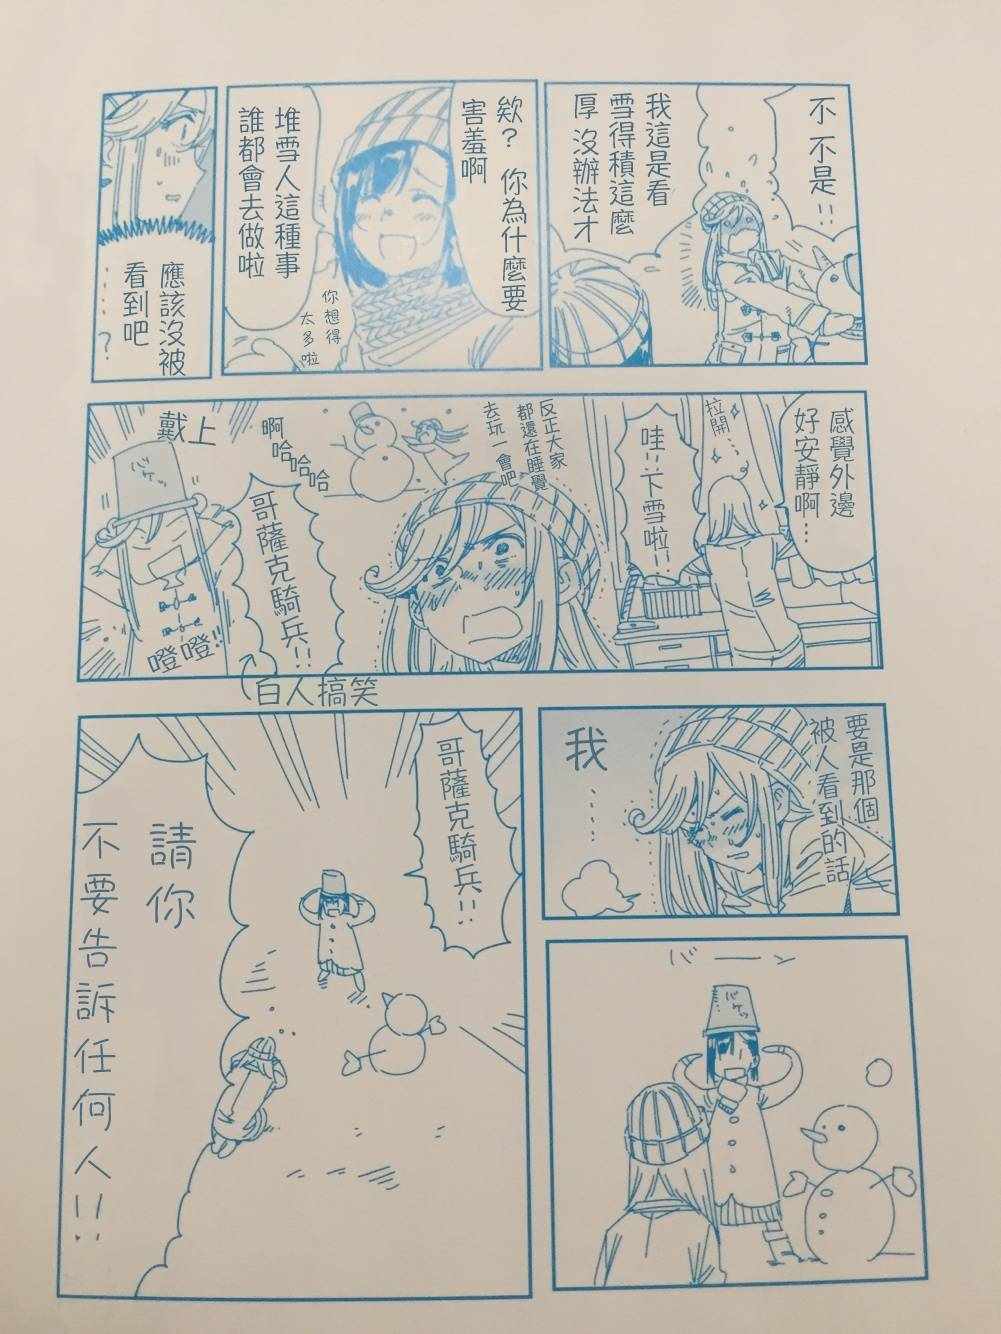 不 不是!!
我這是看
雪得積這麼
厚 沒辦法才
欸? 你為什麼要
害羞啊
堆雪人這種事
誰都會去做啦
你想得
太多啦
應該沒被
看到吧
…?
感覺外邊
好安靜啊…
拉開…
哇!!下雪啦!!
反正大家
都還在睡覺
去玩一會吧
啊
哈哈哈
哥薩克騎兵!!
白人搞笑
戴上
バケツ
噔噔!!
要是那個
被人看到的話
我
……
バーン
バケツ
哥薩克騎兵!!
請你
不要告訴任何人!!